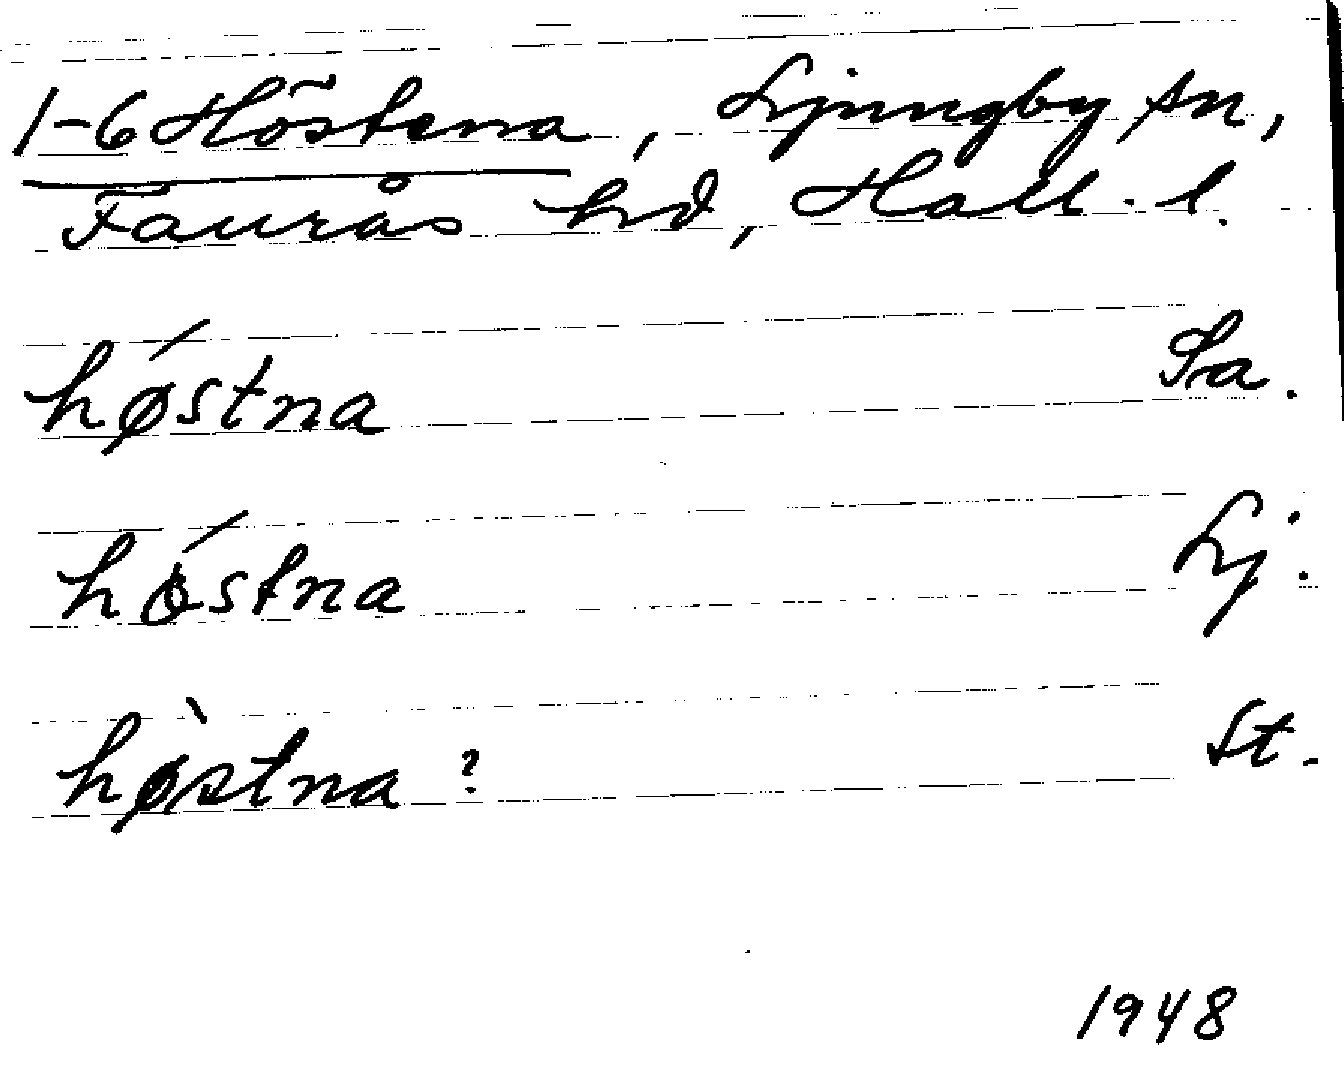 1-6 Höstena, Ljungby sn,
Faurås hd, Hall. l.
hǿstna Sa.
hǿstna Lj.
hø̀stna ? St.
1948